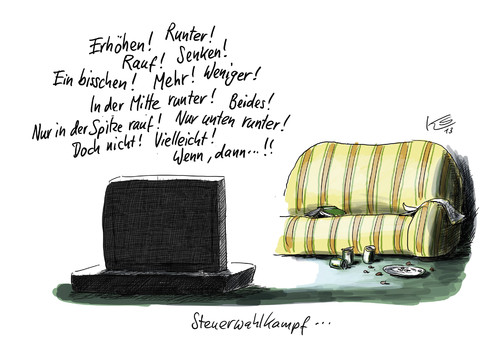 Erhöhen! Runter!
Rauf! Senken!
Ein bisschen! Mehr! Weniger!
In der Mitte runter! Beides!
Nur in der Spitze rauf! Nur unten runter!
Doch nicht! Vielleicht!
Wenn, dann...!!
13
Steuerwahlkampf...